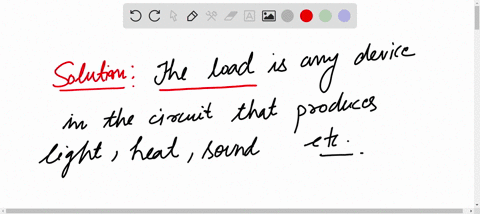 Solution: The load is any device
in the circuit that produces
light, heat, sound etc.